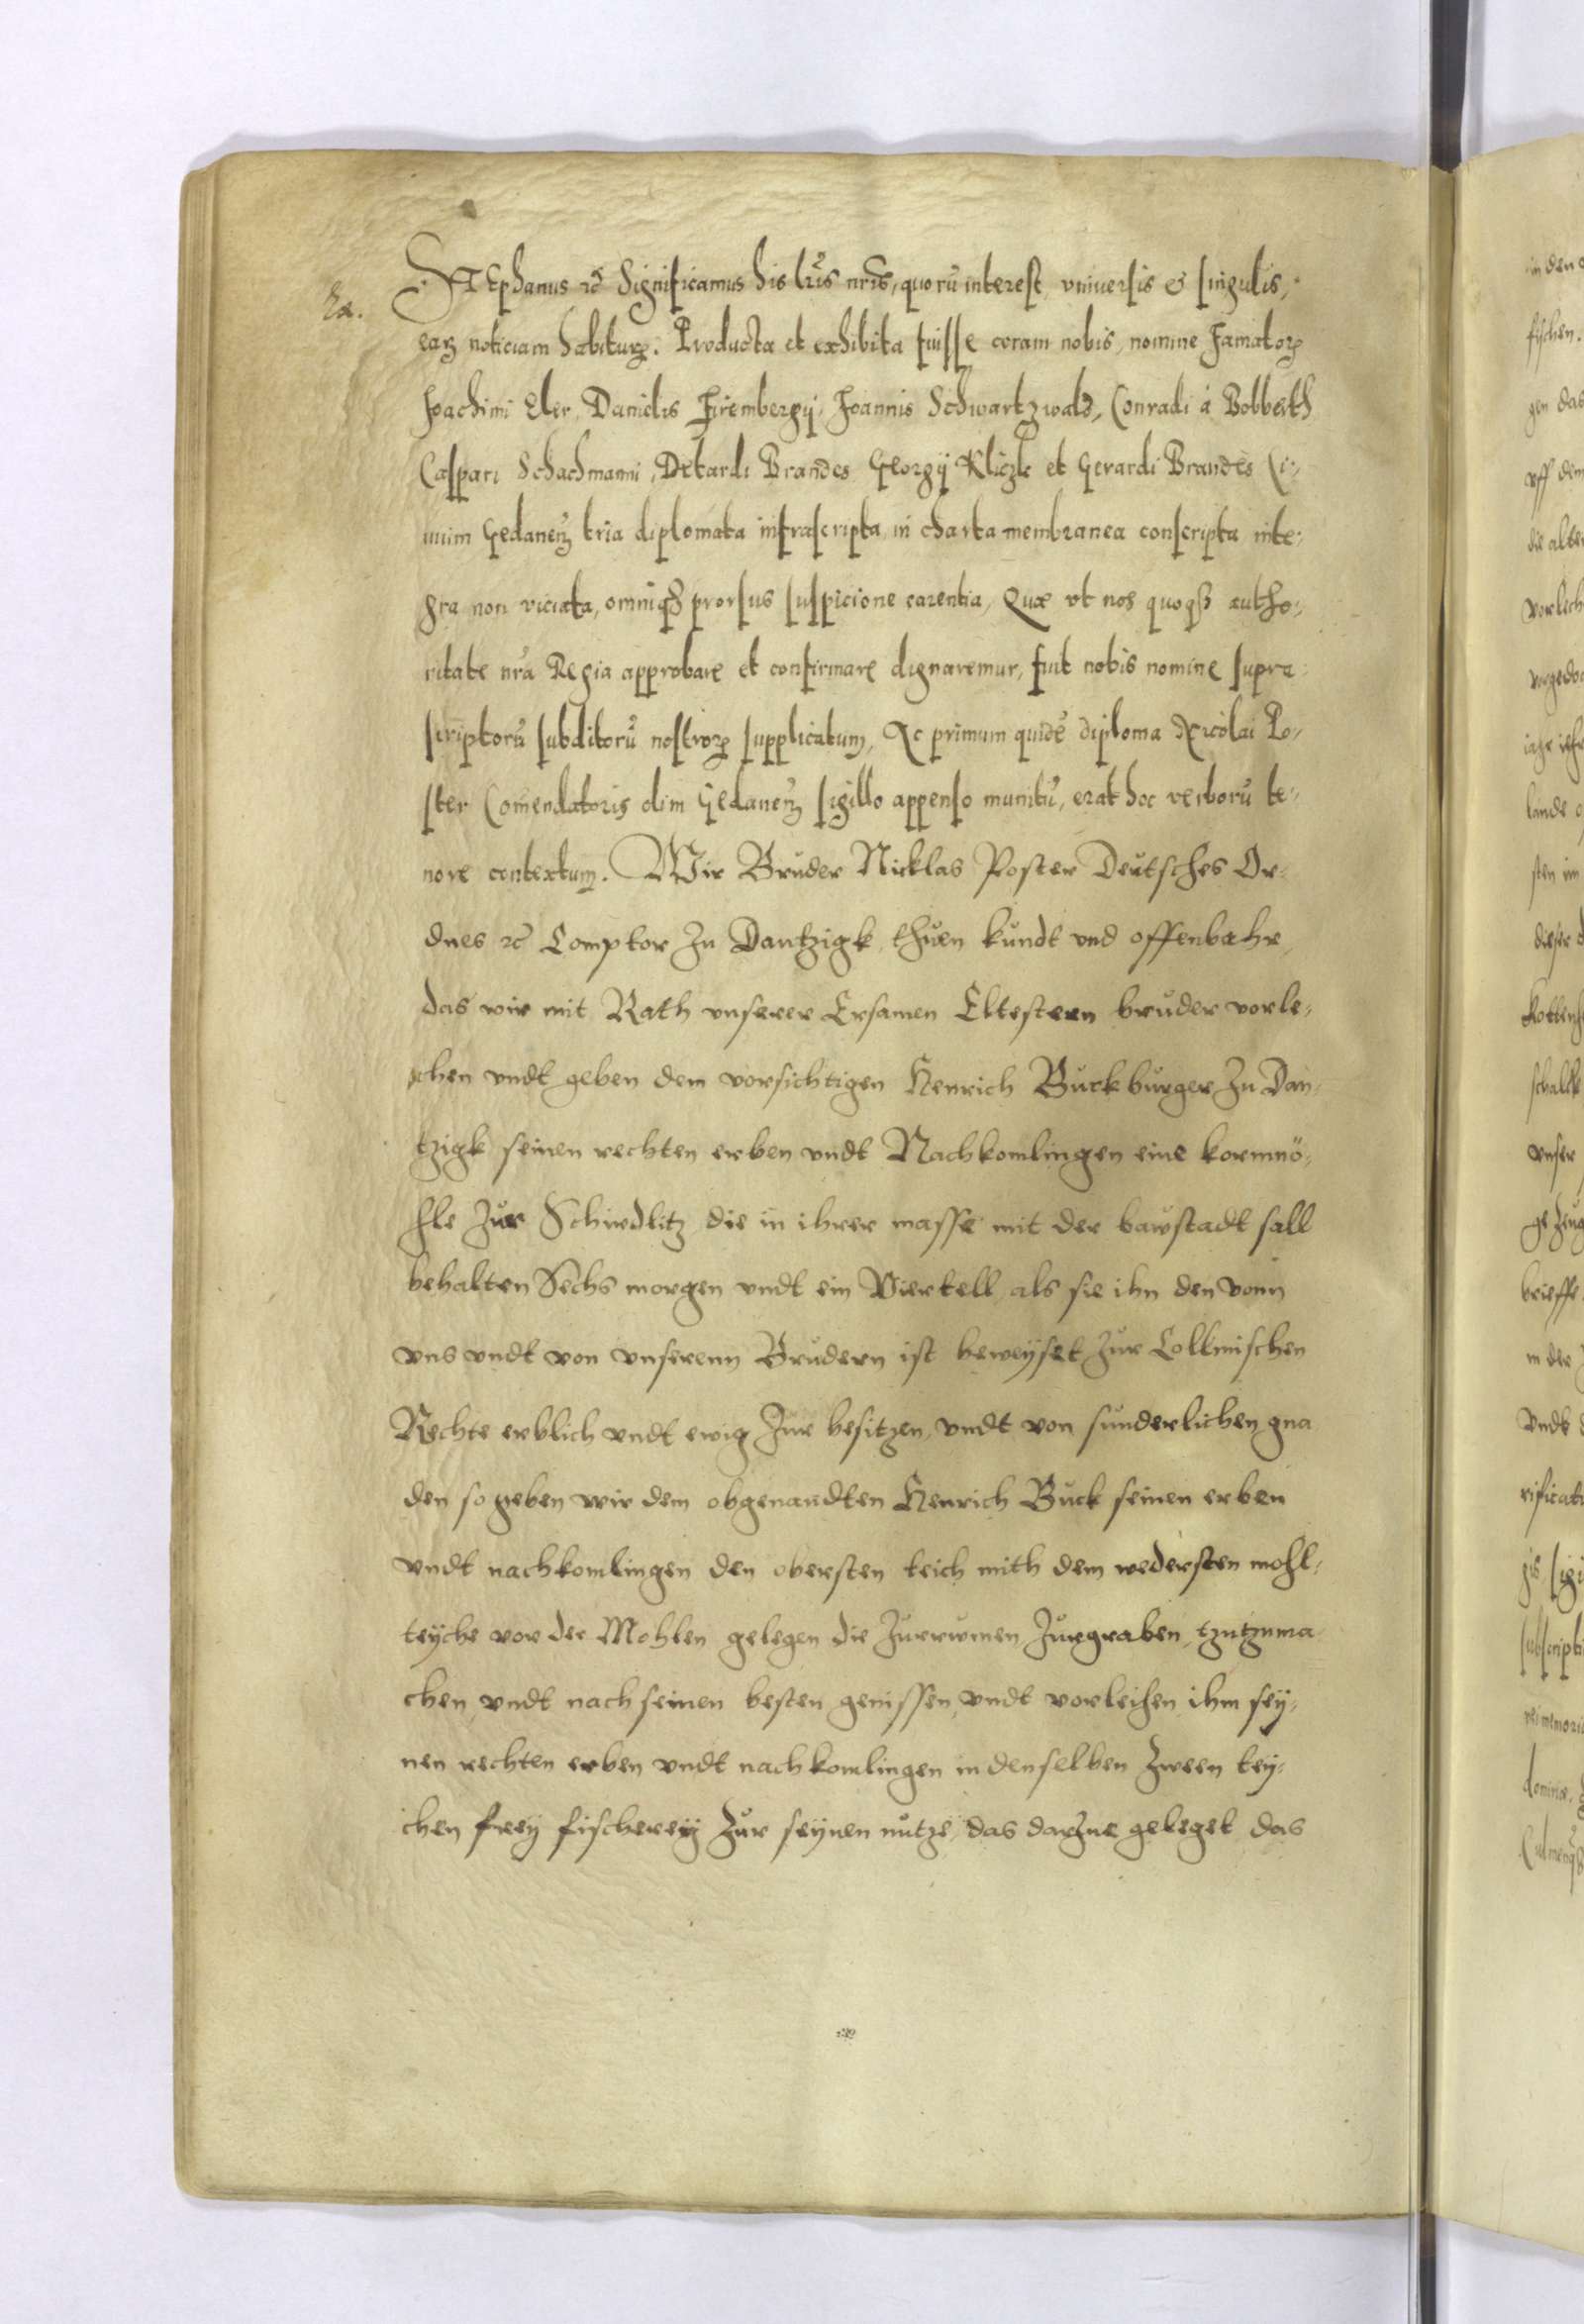 STephanus ꝛc̃ Significamus his lr̃is nr̃is, quorũ interest vniuersis & singulis,
earꝫ noticiam habiturꝝ. Producta et exhibita fuisse coram nobis, nomine Famatorꝝ
Joachimi Eler, Danielis Firembergij, Joannis Schwartzwald, Conradi á Bobbert
Caspari Schachmanni, Detardi Brandes Georgij Kliczke et Gerardi Brandes Ci-
uium Gedanen̄ꝫ tria diplomata infrascripta, in charta membranea conscripta inte-
gra non viciata, omniqꝫ prorsus suspicione carentia, Quæ vt nos quoqꝫ autho-
ritate nr̃a Regia approbare et confirmare dignaremur, fuit nobis nomine supra
scriptorũ subditorũ nostrorꝝ supplicatum, Ac primum quidẽ diploma Nicolai Po-
ster Com̃endatoris olim Gedanen̄ꝫ sigillo appenso munitũ, erat hoc verborũ te-
nore contextum. Wir Bruder Nicklas Poster Deutsches Or-
dnes ꝛc̃ Comptor Zu Dantzigk, thuen kundt vnd offenbahr,
das wir mit Rath vnserer Ersamen Eltestern bruder vorle-
chen vndt geben dem vorsichtigen Henrich Buck burger Zu Dan-
tzigk seinen rechten erben vndt Nachkomlingen eine kornmö-
hle Zur Schirdlitz die in ihrer masse mit der bawstadt sall
behalten Sechs morgen vndt ein Viertell als sie ihn den vonn
vns vndt von vnserenn Brudern ist beweyset Zur Collmischen
Rechte erblich vndt ewig Zur besitzen, vndt von sunderlichen gna
den so geben wir dem obgenandten Henrich Buck seinen erben
vndt nachkomlingen den obersten teich mith dem nedersten mohl-
teyche vor der Mohlen gelegen die Zurrumen Zurgraben, tzutzuma
chen vndt nach seinen besten genissen, vndt vorleihen ihm sey-
nen rechten erben vndt nachkomlingen in denselben Zween tey-
chen frey fischerey Zur seynen nutze, das darZue geleget das